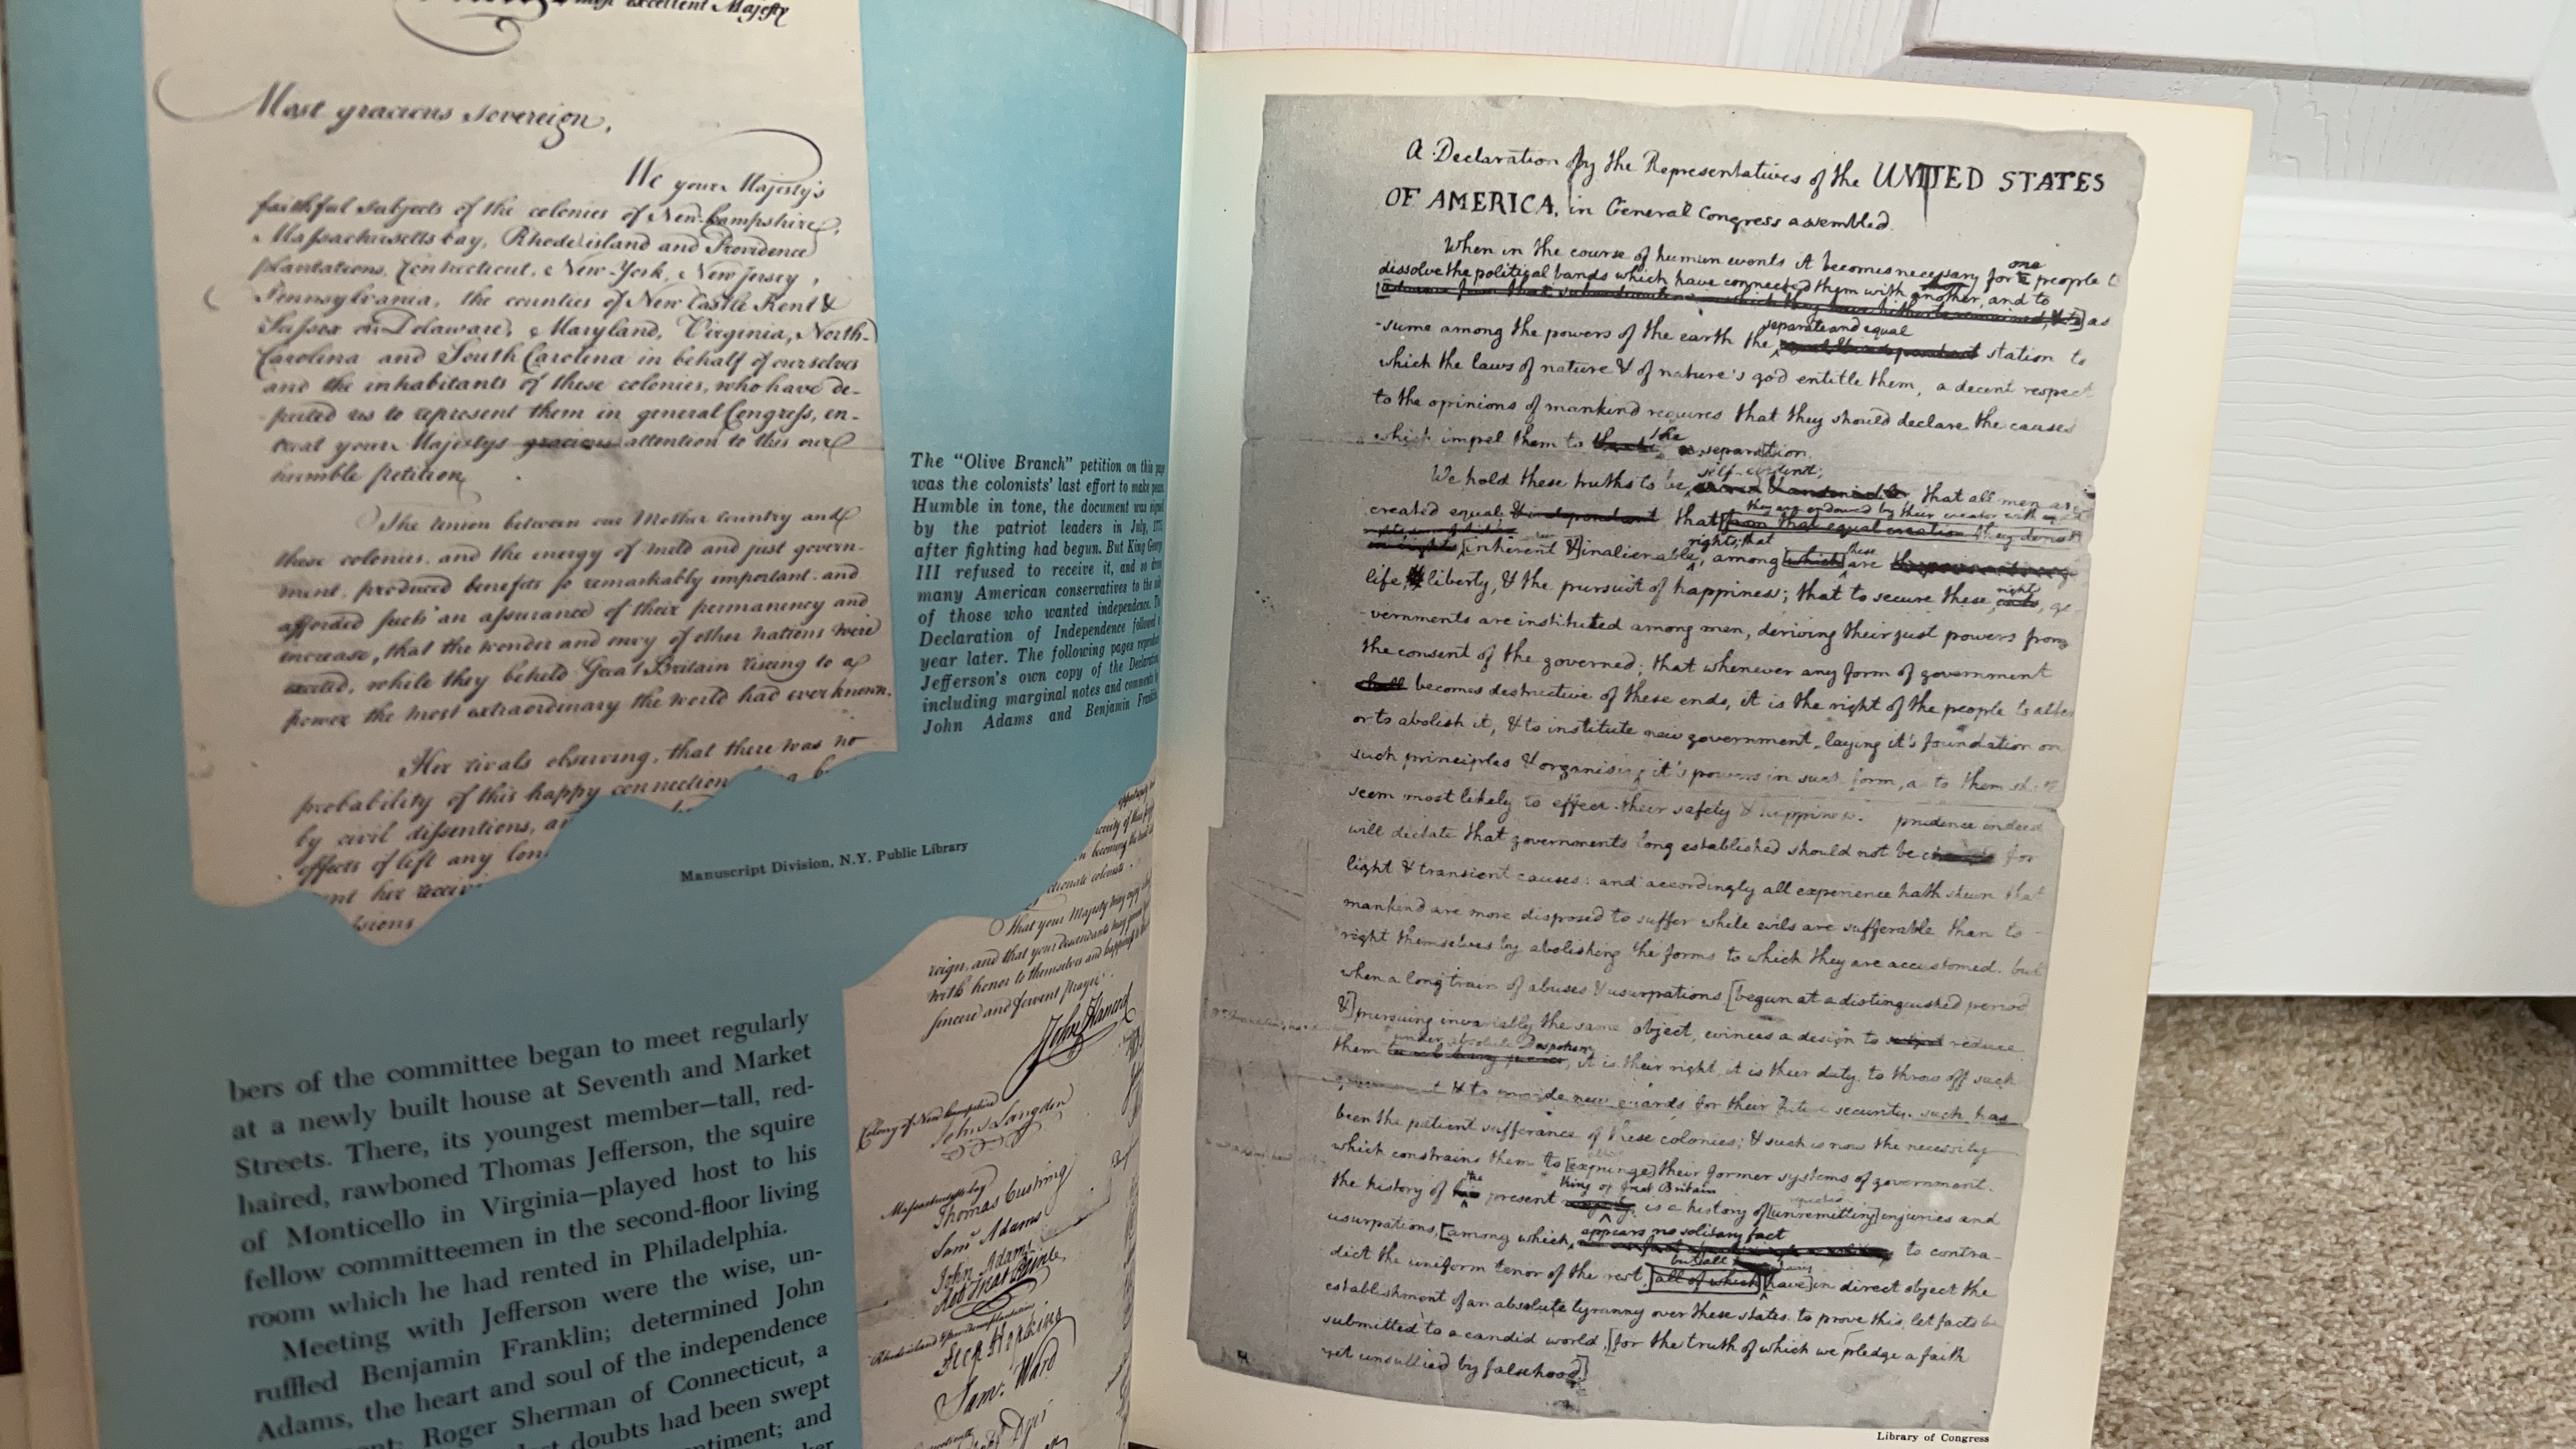 most excellent Majesty
Most gracious sovereign,
We your Majesty's
faithful subjects of the colonies of New-hampshire,
Massachusetts bay, Rhode island and Providence
plantations, Connecticut, New-York, New Jersey,
Pennsylvania, the counties of New Castle Kent &
Sussex on Delaware, Maryland, Virginia, North-
Carolina and South Carolina in behalf of ourselves
and the inhabitants of these colonies, who have de-
puted us to represent them in general Congress, en-
treat your Majestys gracious attention to this our
humble petition.
The union between our Mother Country and
these colonies, and the energy of mild and just govern-
ment, produced benefits so remarkably important, and
afforded such an assurance of their permanency and
increase, that the wonder and envy of other nations were
excited, while they beheld Great Britain riseing to a
power the most extraordinary the world had ever known.
Her rivals observing, that there was no
probability of this happy connection
by civil dissentions, an
effects of left any lon
ent her receiv
sions
The "Olive Branch" petition on this page
was the colonists' last effort to make peace.
Humble in tone, the document was signed
by the patriot leaders in July, 1775,
after fighting had begun. But King George
III refused to receive it, and so drove
many American conservatives to the side
of those who wanted independence. The
Declaration of Independence followed a
year later. The following pages reproduce
Jefferson's own copy of the Declaration,
including marginal notes and comments by
John Adams and Benjamin Franklin.
Manuscript Division, N.Y. Public Library
That your Majesty may enjoy
reign, and that your descendants may govern
with honor to themselves and happiness
sincere and fervent prayer.
John Hancock
Colony of New hampshire
John Langdon
Massachusetts bay
Thomas Cushing
Saml Adams
John Adams
Rob Treat Paine
Rhode island & providence plantations
Step Hopkins
Sam: Ward
bers of the committee began to meet regularly
at a newly built house at Seventh and Market
Streets. There, its youngest member—tall, red-
haired, rawboned Thomas Jefferson, the squire
of Monticello in Virginia—played host to his
fellow committeemen in the second-floor living
room which he had rented in Philadelphia.
Meeting with Jefferson were the wise, un-
ruffled Benjamin Franklin; determined John
Adams, the heart and soul of the independence
Roger Sherman of Connecticut, a
doubts had been swept
ntiment; and
A Declaration by the Representatives of the UNITED STATES
OF AMERICA, in General Congress assembled.
When in the course of human events it becomes necessary for one people to
dissolve the political bands which have connected them with another, and to
[advance from that subordination in which they have hitherto remained, & to] as
separate and equal
-sume among the powers of the earth the equal & independant station to
which the laws of nature & of nature's god entitle them, a decent respect
to the opinions of mankind requires that they should declare the causes
which impel them to the separation.
self-evident;
We hold these truths to be sacred & undeniable, that all men are
they are endowed by their creator with
created equal & independant, that from that equal creation they derive
rights; that
in rights [inherent &] inalienable, among which these are
life, & liberty, & the pursuit of happiness; that to secure these ends, rights go-
-vernments are instituted among men, deriving their just powers from
the consent of the governed; that whenever any form of government
shall becomes destructive of these ends, it is the right of the people to alter
or to abolish it, & to institute new government, laying it's foundation on
such principles & organising it's powers in such form, as to them shall
seem most likely to effect their safety & happiness. prudence indeed
will dictate that governments long established should not be changed for
light & transient causes: and accordingly all experience hath shewn that
mankind are more disposed to suffer while evils are sufferable than to
right themselves by abolishing the forms to which they are accustomed. but
when a long train of abuses & usurpations [begun at a distinguished period
&] pursuing invariably the same object, evinces a design to subject reduce
under absolute Despotism
them to arbitrary power, it is their right, it is their duty, to throw off such
government & to provide new guards for their future security. such has
been the patient sufferance of these colonies; & such is now the necessity
which constrains them to [expunge] their former systems of government.
the King of Great Britain
the history of his present majesty, is a history of [unremitting] injuries and
appears no solitary fact
usurpations, [among which, to contra-
but all
dict the uniform tenor of the rest, [all of which] [have] in direct object the
establishment of an absolute tyranny over these states. to prove this, let facts be
submitted to a candid world, [for the truth of which we pledge a faith
yet unsullied by falsehood]
Library of Congress